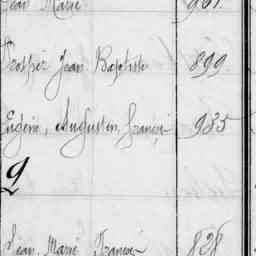 Jean Marie 961.
Jean Baptiste 899.
Eugène, Augustin, François 935
9
Jean Marie François 828